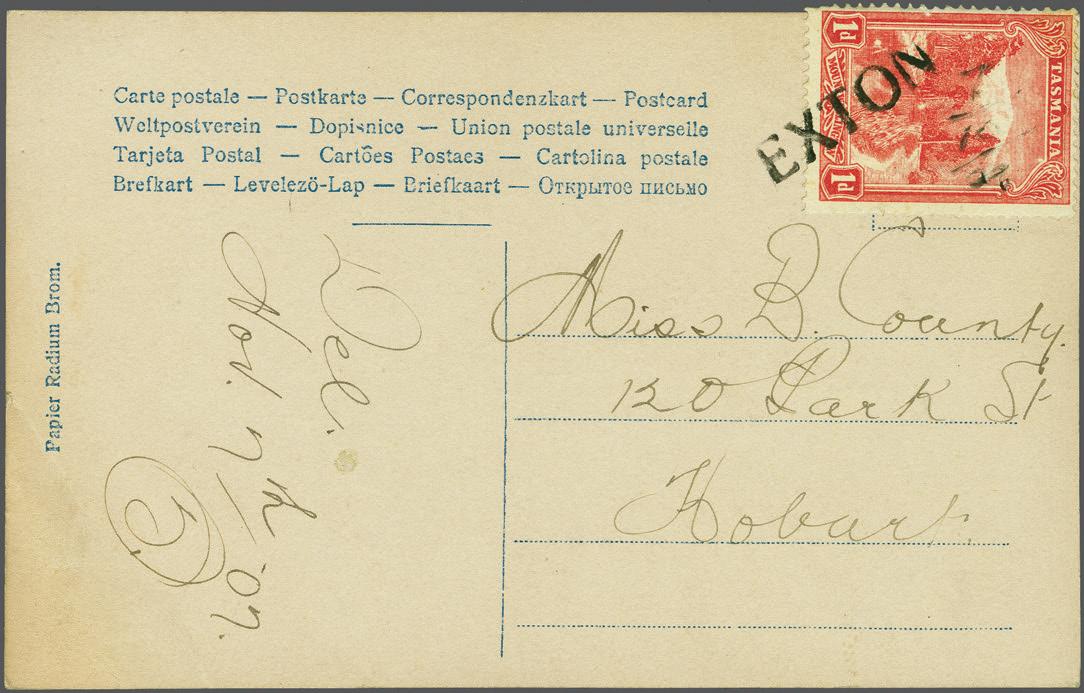 Carte postale — Postkarte — Correspondenzkart — Postcard
Weltpostverein — Dopisnice — Union postale universelle
Tarjeta Postal — Cartões Postaes — Cartolina postale
Brefkart — Levelezö-Lap — Briefkaart — Открытое письмо
Papier Radium Brom.
TASMANIA
1d
1d
EXTON
Miss B. County.
120 Park St
Hobart.
Del.
Nov. 7
-07.
5